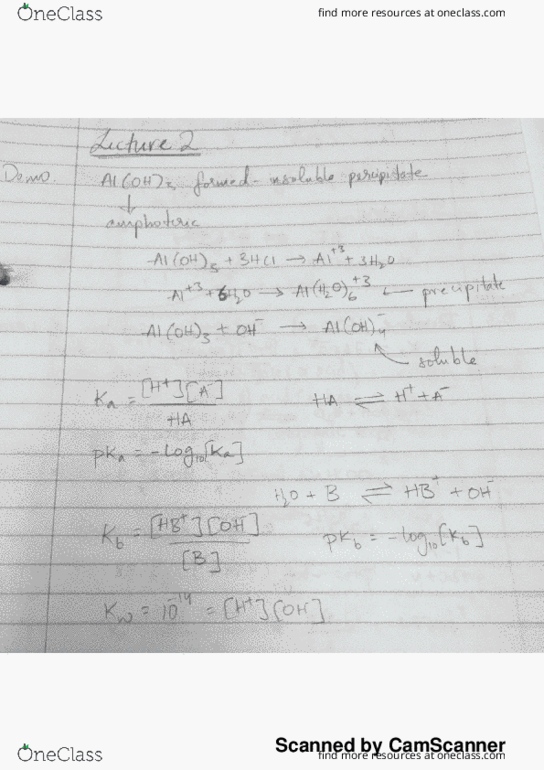 OneClass
find more resources at oneclass.com
Lecture 2
Demo. Al(OH)₃ formed - insoluble percipitate
↓
amphoteric
Al(OH)₃ + 3HCl → Al⁺³ + 3H₂O
Al⁺³ + 6H₂O → Al(H₂O)₆⁺³ ← precipitate
Al(OH)₃ + OH⁻ → Al(OH)₄⁻
soluble
Kₐ = [H⁺][A⁻] / HA HA ⇌ H⁺ + A⁻
pKₐ = -log₁₀[Kₐ]
H₂O + B ⇌ HB⁺ + OH⁻
K_b = [HB⁺][OH⁻] / [B] pK_b = -log₁₀[K_b]
K_w = 10⁻¹⁴ = [H⁺][OH⁻]
Scanned by CamScanner
OneClass
find more resources at oneclass.com